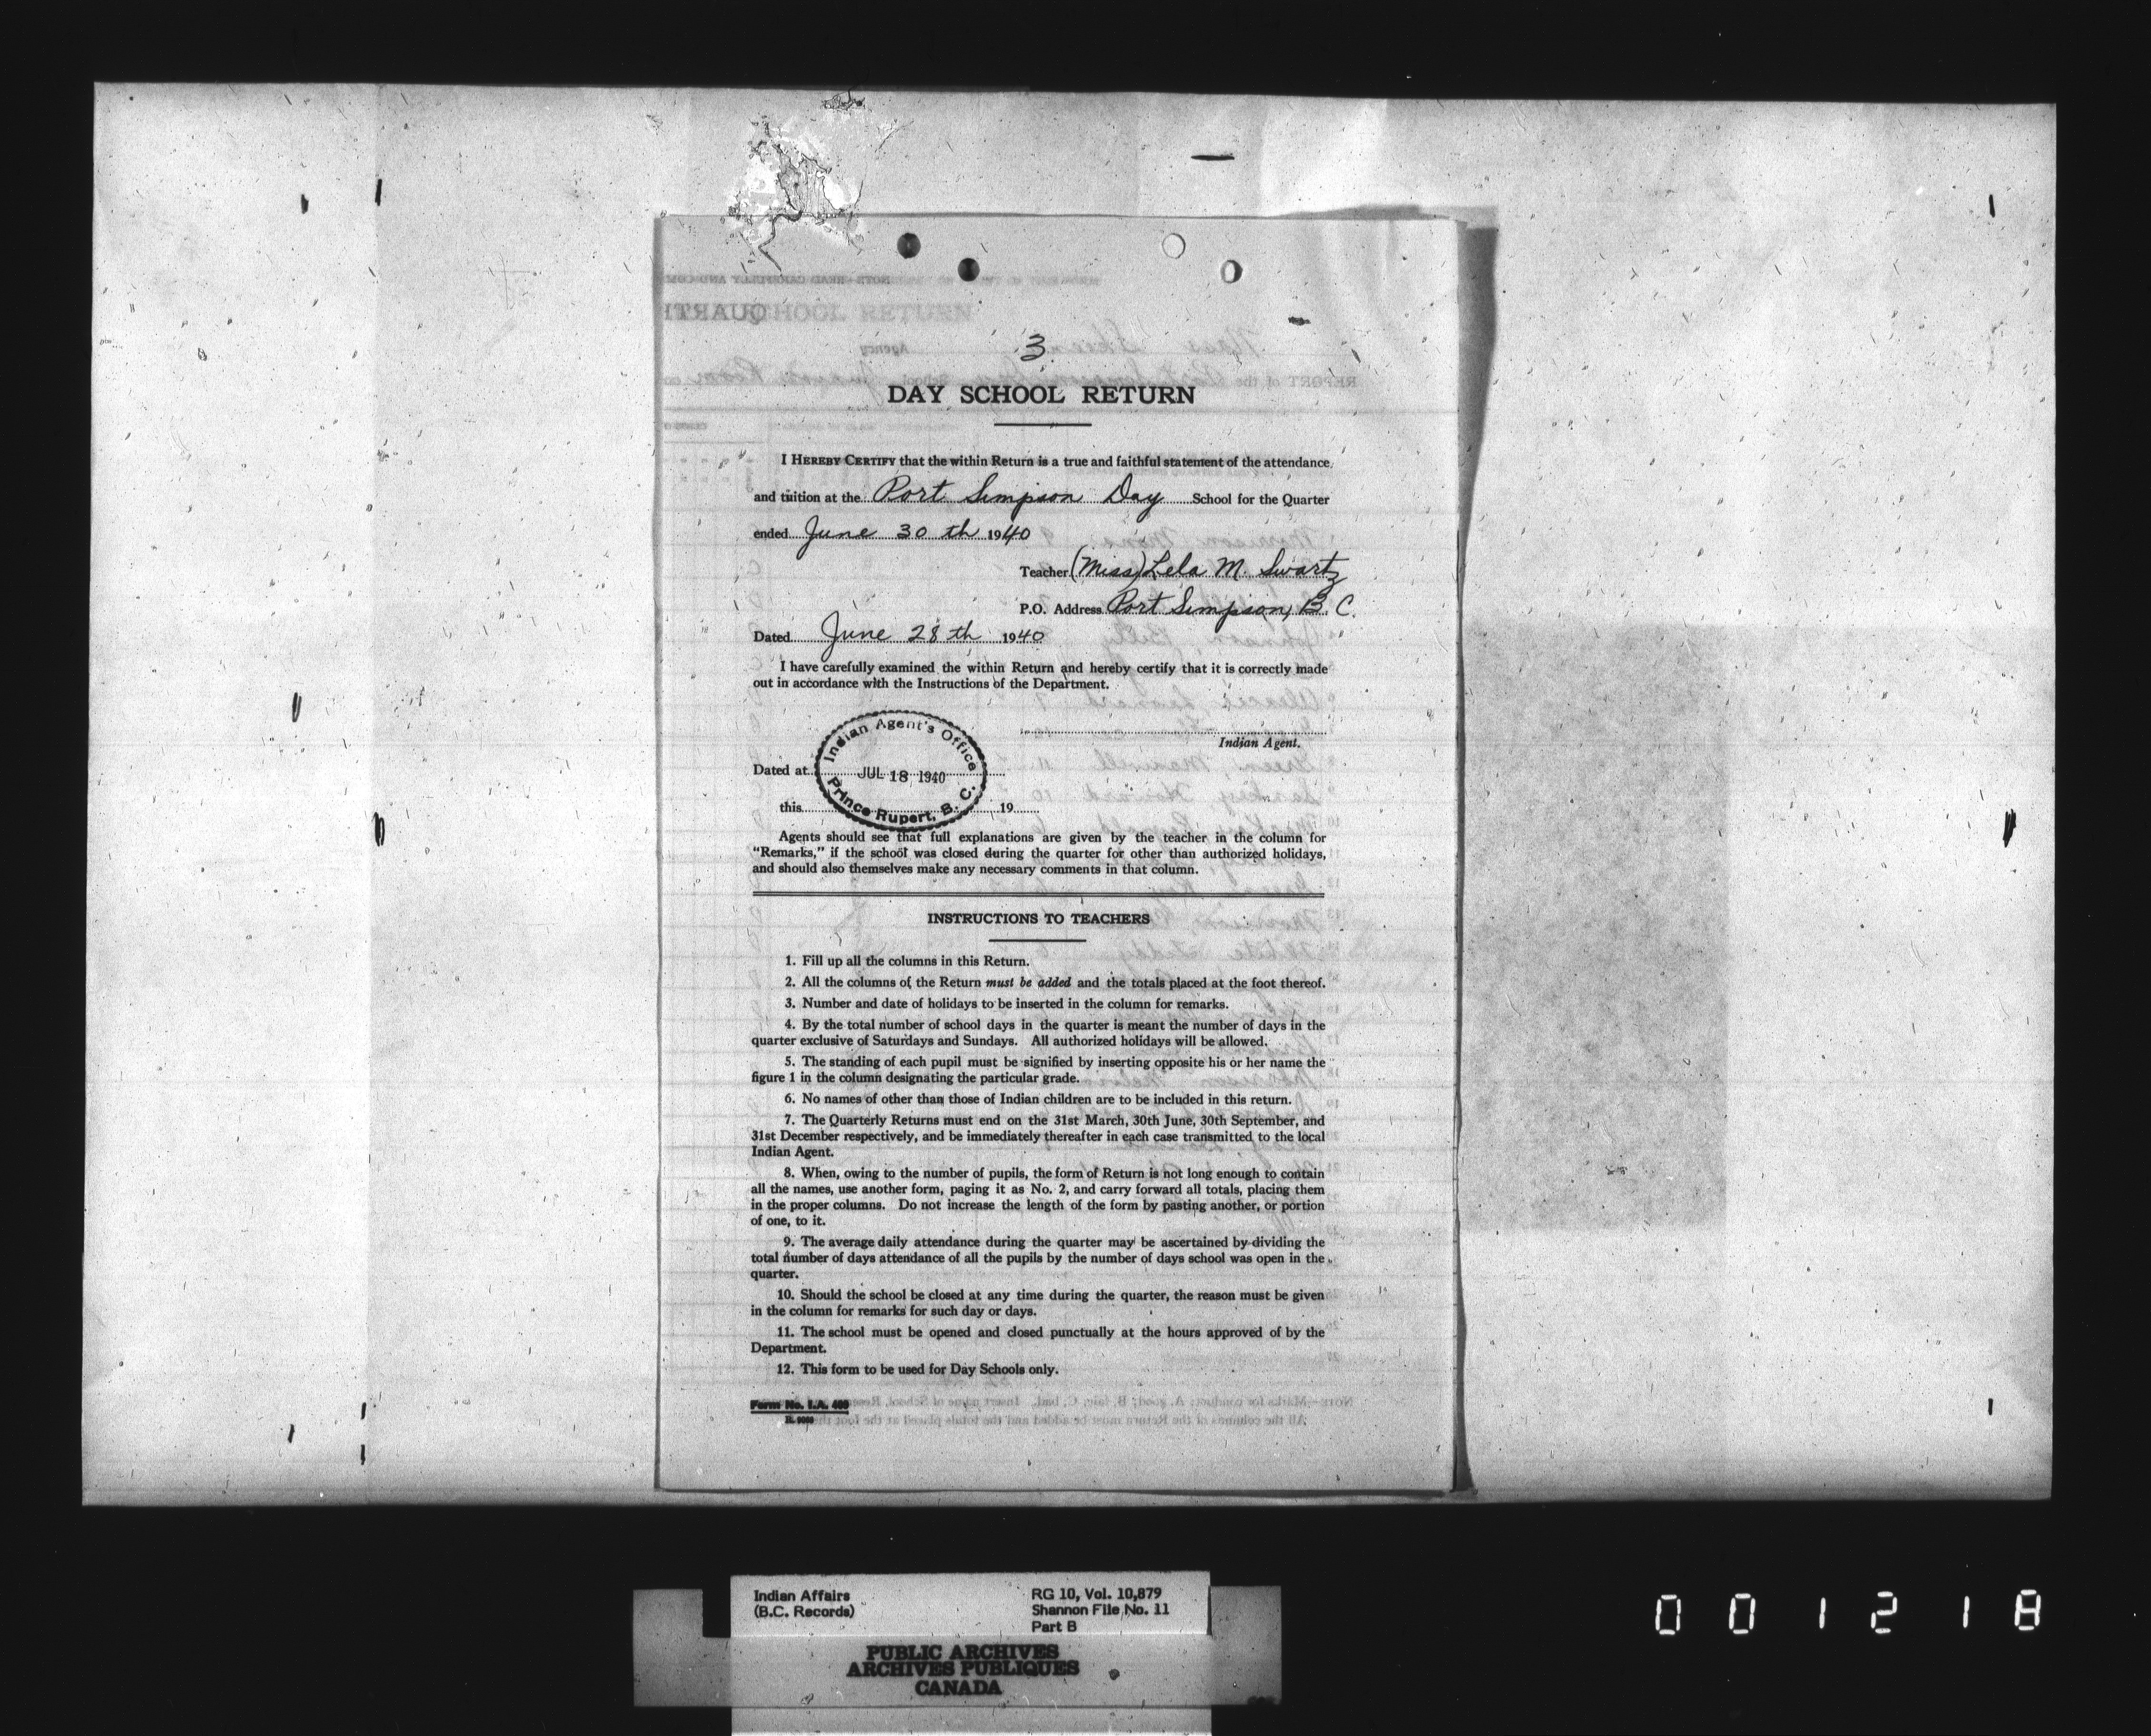 3.
DAY SCHOOL RETURN
I HEREBY CERTIFY that the within Return is a true and faithful statement of the attendance
and tuition at the Port Simpson Day School for the Quarter
ended June 30 th 1940
Teacher (Miss) Lela M. Swartz
P.O. Address Port Simpson, B. C.
Dated June 28 th 1940
I have carefully examined the within Return and hereby certify that it is correctly made
out in accordance with the Instructions of the Department.
Indian Agent.
Indian Agent's Office
Dated at JUL 18 1940
Prince Rupert, B. C.
this 19
Agents should see that full explanations are given by the teacher in the column for
"Remarks," if the school was closed during the quarter for other than authorized holidays,
and should also themselves make any necessary comments in that column.
INSTRUCTIONS TO TEACHERS
1. Fill up all the columns in this Return.
2. All the columns of the Return must be added and the totals placed at the foot thereof.
3. Number and date of holidays to be inserted in the column for remarks.
4. By the total number of school days in the quarter is meant the number of days in the
quarter exclusive of Saturdays and Sundays. All authorized holidays will be allowed.
5. The standing of each pupil must be signified by inserting opposite his or her name the
figure 1 in the column designating the particular grade.
6. No names of other than those of Indian children are to be included in this return.
7. The Quarterly Returns must end on the 31st March, 30th June, 30th September, and
31st December respectively, and be immediately thereafter in each case transmitted to the local
Indian Agent.
8. When, owing to the number of pupils, the form of Return is not long enough to contain
all the names, use another form, paging it as No. 2, and carry forward all totals, placing them
in the proper columns. Do not increase the length of the form by pasting another, or portion
of one, to it.
9. The average daily attendance during the quarter may be ascertained by dividing the
total number of days attendance of all the pupils by the number of days school was open in the
quarter.
10. Should the school be closed at any time during the quarter, the reason must be given
in the column for remarks for such day or days.
11. The school must be opened and closed punctually at the hours approved of by the
Department.
12. This form to be used for Day Schools only.
Form No. I.A.
Indian Affairs RG 10, Vol. 10,879
(B.C. Records) Shannon File No. 11
Part B
PUBLIC ARCHIVES
ARCHIVES PUBLIQUES
CANADA
001218